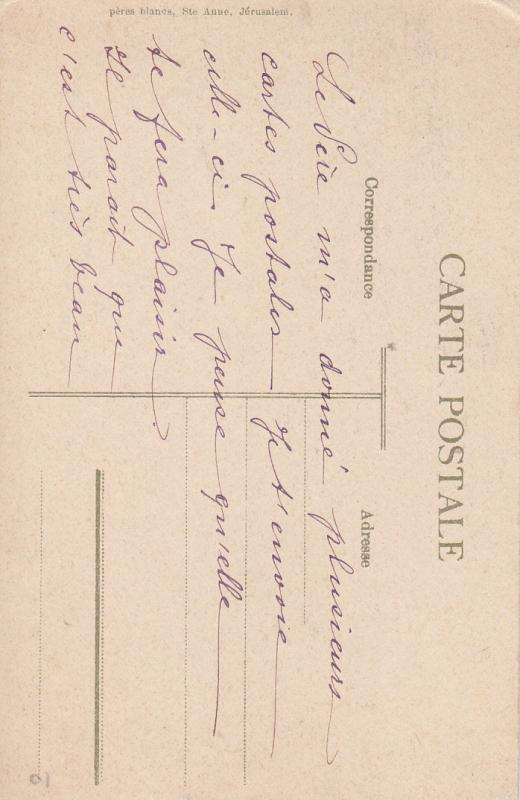 CARTE POSTALE
Correspondance
Adresse
Le Père m'a donné plusieurs
cartes postales je t'envoie
celle-ci. Je pense qu'elle
te fera plaisir.
Il parait que
c'est très beau
pères blancs, Ste Anne, Jérusalem.